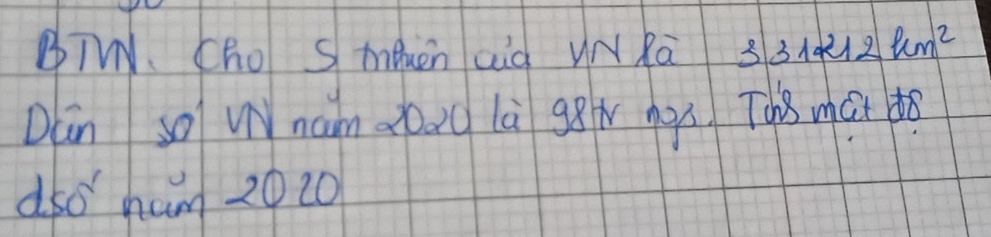 BTVN. Cho S tnhiên của VN là 331212 km²
Dân số VN năm 2020 là 98 tr ngs. Tính mật độ
dsố năm 2020